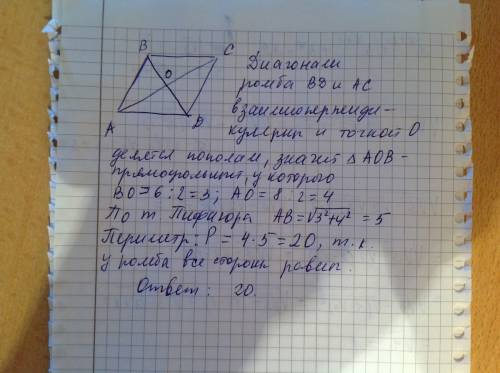 B
C
O
A
D
Диагонали
ромба BD и AC
взаимоперпенди-
кулярны и точкой O
делятся пополам, значит △AOB -
прямоугольный, у которого
BO = 6 : 2 = 3; AO = 8 : 2 = 4
По т. Пифагора AB = √3²+4² = 5
Периметр: P = 4 · 5 = 20, т.к.
у ромба все стороны равны.
Ответ: 20.